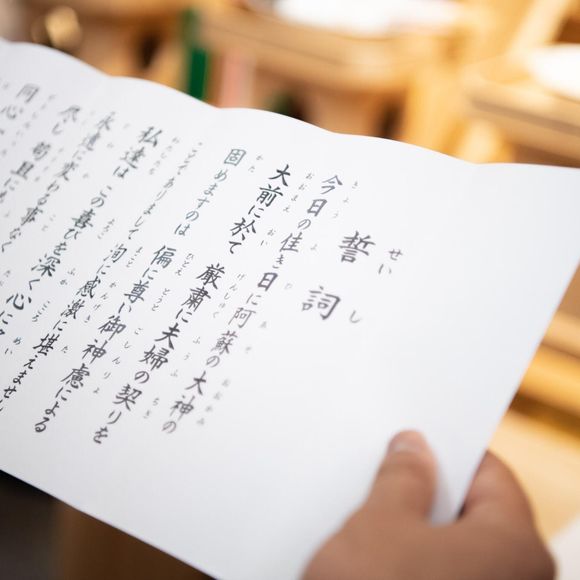 誓詞
今日の佳き日に阿蘇の大神の
大前に於て 厳粛に夫婦の契りを
固めますのは 偏に尊い御神慮による
ことでありまして 洵に感激に堪えません
私達は この喜びを深く心に
永遠に変わる事なく
尽し 苟且にも
同心一